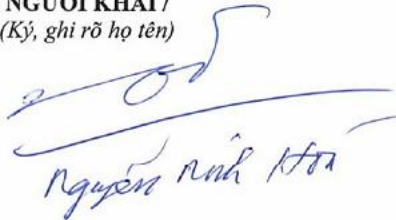 NGƯỜI KHAI /
(Ký, ghi rõ họ tên)
Nguyễn Minh Hoà